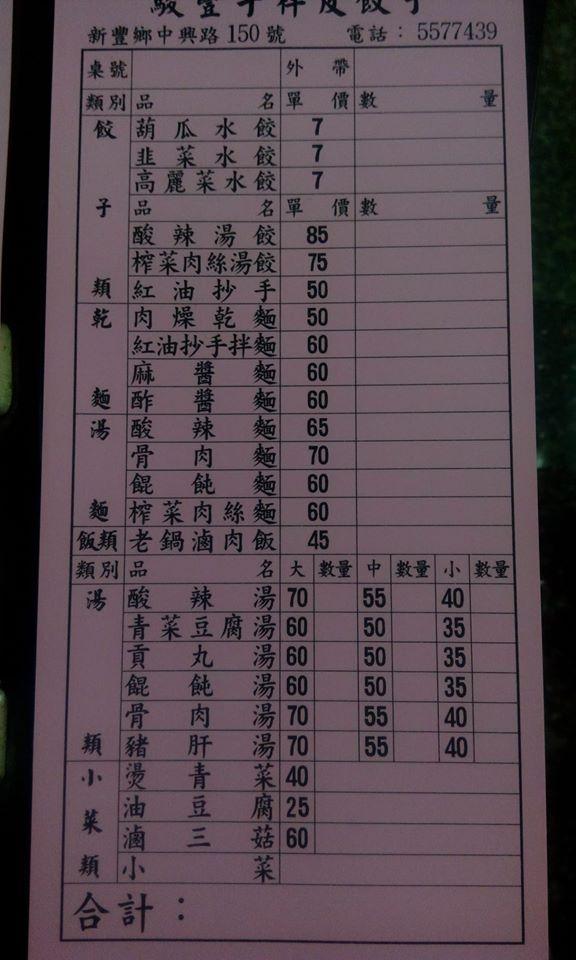 駿豐手桿皮餃子
新豐鄉中興路150號 電話：5577439
桌號 外帶
類別 品名 單價 數量
餃子類 葫瓜水餃 7
韭菜水餃 7
高麗菜水餃 7
品名 單價 數量
酸辣湯餃 85
榨菜肉絲湯餃 75
紅油抄手 50
乾麵 肉燥乾麵 50
紅油抄手拌麵 60
麻醬麵 60
酢醬麵 60
湯麵 酸辣麵 65
骨肉麵 70
餛飩麵 60
榨菜肉絲麵 60
飯類 老鍋滷肉飯 45
類別 品名 大 數量 中 數量 小 數量
湯類 酸辣湯 70 55 40
青菜豆腐湯 60 50 35
貢丸湯 60 50 35
餛飩湯 60 50 35
骨肉湯 70 55 40
豬肝湯 70 55 40
小菜類 燙青菜 40
油豆腐 25
滷三菇 60
小菜
合計：